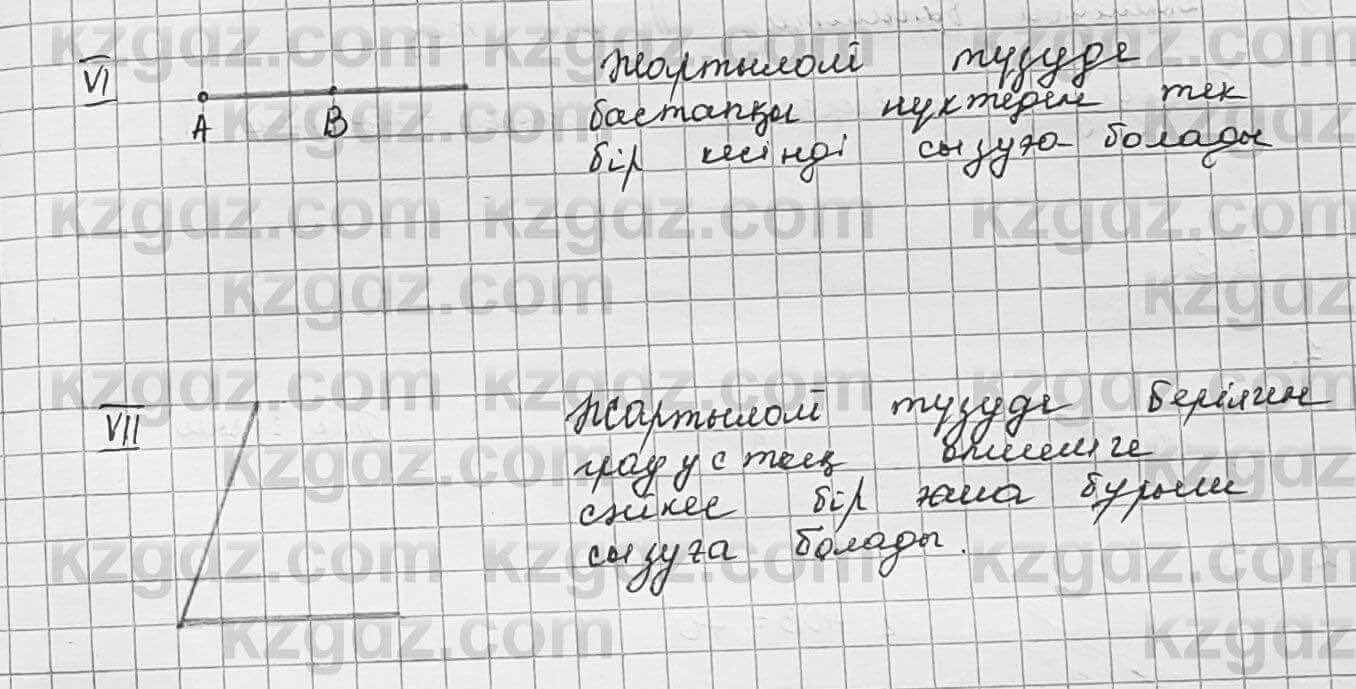 VI
A B
Жартылай түзуде
бастапқы нүктеден тек
бір кесінді сызуға болады
VII
Жартылай түзуде берілген
градустең өлшемге
сәйкес бір ғана бұрыш
сызуға болады.
kzgdz.com